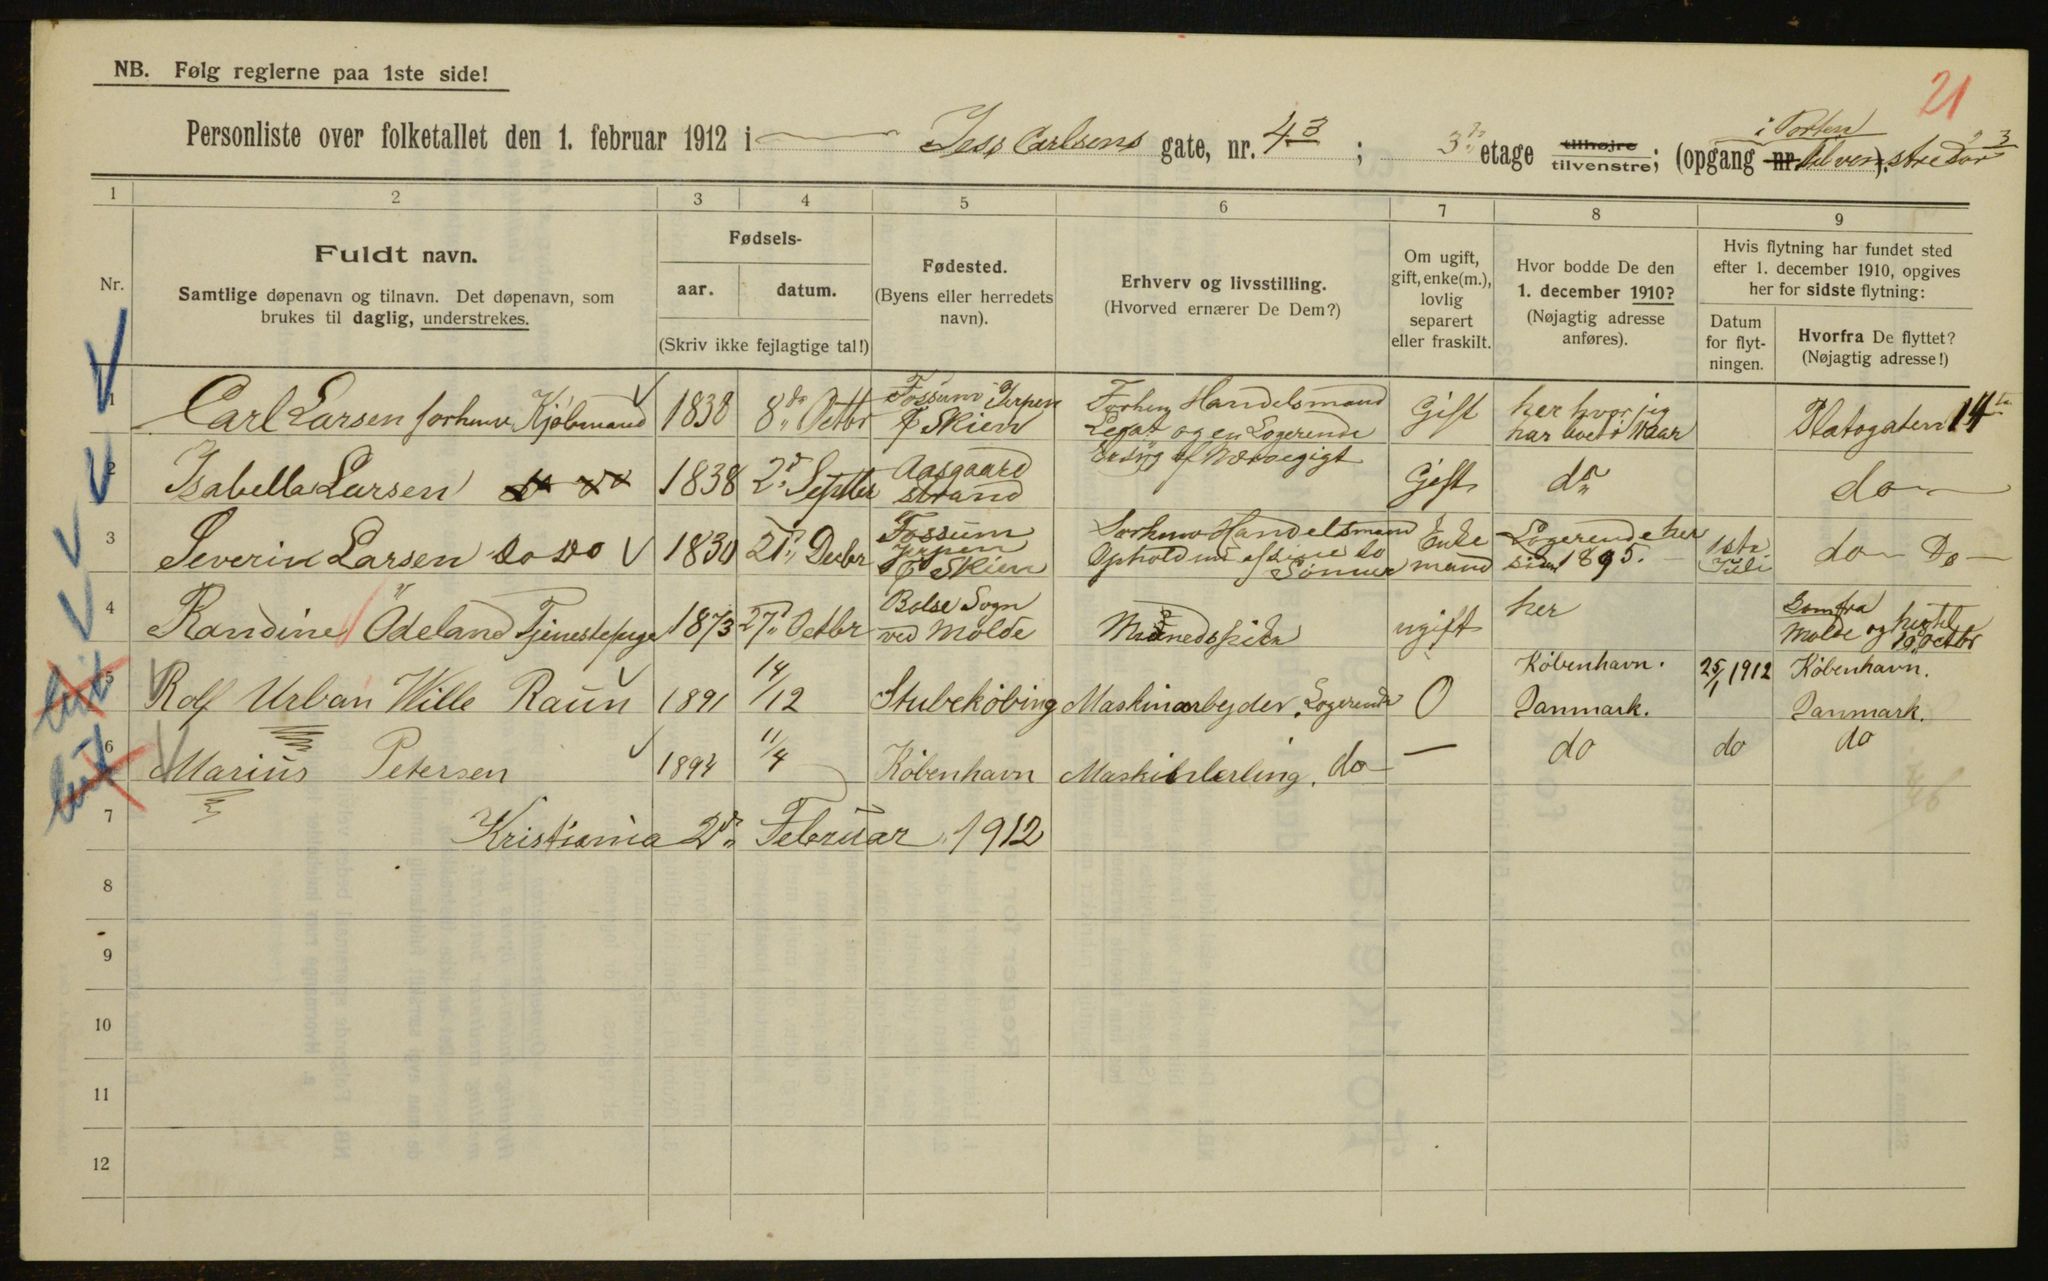 21
NB. Følg reglerne paa 1ste side!
Personliste over folketallet den 1. februar 1912 i Jess Carlsens gate, nr. 43; 3d etage tilhøjre tilvenstre; (opgang nr. ).
i Porten
1 2 3 4 5 6 7 8 9
Nr.
Fuldt navn.
Samtlige døpenavn og tilnavn. Det døpenavn, som
brukes til daglig, understrekes.
Fødsels-
aar. datum.
(Skriv ikke fejlagtige tal!)
Fødested.
(Byens eller herredets
navn).
Erhverv og livsstilling.
(Hvorved ernærer De Dem?)
Om ugift,
gift, enke(m.),
lovlig
separert
eller fraskilt.
Hvor bodde De den
1. december 1910?
(Nøjagtig adresse
anføres).
Hvis flytning har fundet sted
efter 1. december 1910, opgives
her for sidste flytning:
Datum
for flyt-
ningen.
Hvorfra De flyttet?
(Nøjagtig adresse!)
1 Carl Larsen forhenv Kjøbmand 1838 8de Octbr Fossum Jerpen Skien Forhenv Handelsmand Legat og en Logerende Gift her hvor jeg har boet i Aar Platogaten 14
2 Isabella Larsen 1838 2d Septbr Aasgaard strand Gift do do
3 Severin Larsen Do Do 1830 21d Decbr Fossum Jerpen Skien Forhenv Handelsmand Ophold af sine to Sønner Enke mand Logerende her siden 1895. 1ste Juli do Do
4 Randine Ödeland Tjenestepige 1873 27d Octbr Bolsø Sogn ved Molde Maanedspike ugift her Kom fra Molde og hertil 19 Octbr
5 Rolf Urban Wille Raun 1891 14/12 Stubekøbing Maskinarbejder, Logerende O København. Danmark. 25/1 1912 København. Danmark.
6 Marius Petersen 1894 11/4 København Maskinlærling. do — do do do
7 Kristiania 2d Februar 1912
8
9
10
11
12